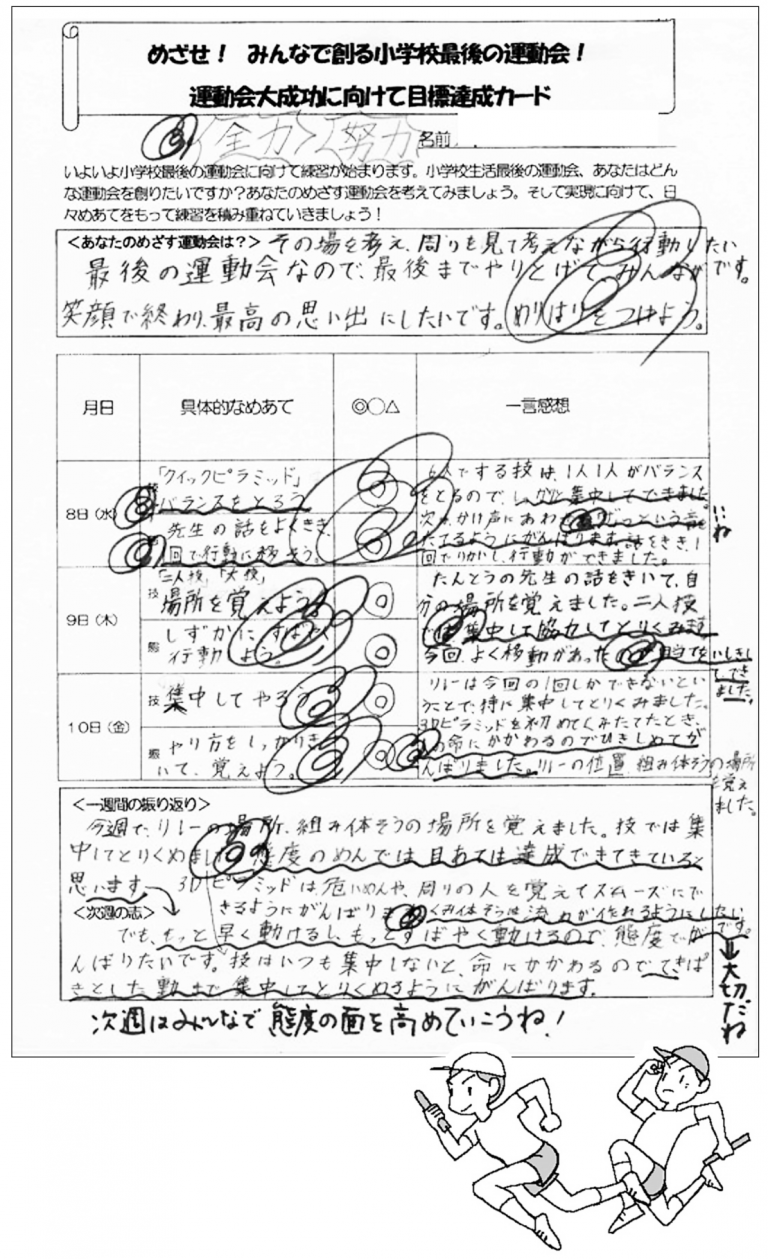 めざせ! みんなで創る小学校最後の運動会!
運動会大成功に向けて目標達成カード
全力 努力
名前
いよいよ小学校最後の運動会に向けて練習が始まります。小学校生活最後の運動会、あなたはどん
な運動会を創りたいですか?あなたのめざす運動会を考えてみましょう。そして実現に向けて、日
々めあてをもって練習を積み重ねていきましょう!
<あなたのめざす運動会は?> その場を考え、周りを見て考えながら行動したい
です。
最後の運動会なので、最後までやりとげて、みんなが
笑顔で終わり、最高の思い出にしたいです。めりはりをつけよう。
月日 具体的なめあて ◎○△ 一言感想
8日(水)
技 「クイックピラミッド」
バランスをとろう
◎
態 先生の話をよくきき、
1回で行動に移そう。
◎
6人でする技は、1人1人がバランス
をとるので、しっかりと集中してできました。
次は、かけ声にあわせ
たてるようにがんばります。話をきき、1
回でりかいし、行動ができました。
いいね
9日(木)
技 「二人技」「大技」
場所を覚えよう。
◎
態 しずかに、すばやく
行動しよう。
◎
たんとうの先生の話をきいて、自
分の場所を覚えました。二人技
では、集中して協力してとりくみました
今回、よく移動があったので 目当てをいしき
してでき
ました。
10日(金)
技 集中してやろう
◎
態 やり方をしっかりき
いて、覚えよう。
◎
リレーは今回の1回しかできないとい
うことで、特に集中してとりくみました。
3Dピラミッドを初めてくみたてたとき、
の命にかかわるのでひきしめてが
んばりました。リレーの位置 組み体そうの場所
を覚え
ました。
<一週間の振り返り>
今週で、リレーの場所、組み体そうの場所を覚えました。技では集
中してとりくめました 態度のめんでは目あては達成できてきていると
思います。 3Dピラミッドは危いめんや、周りの人を覚えてスムーズにで
きるようにがんばります くみ体そうは流れが作れるようにしたい
です。
<次週の志>
でも、もっと早く動けるし、もっとすばやく動けるので、態度でが
んばりたいです。技はいつも集中しないと、命にかかわるのでてきぱ
きとした動きで集中してとりくめるようにがんばります。
大切だね
次週はみんなで態度の面を高めていこうね!